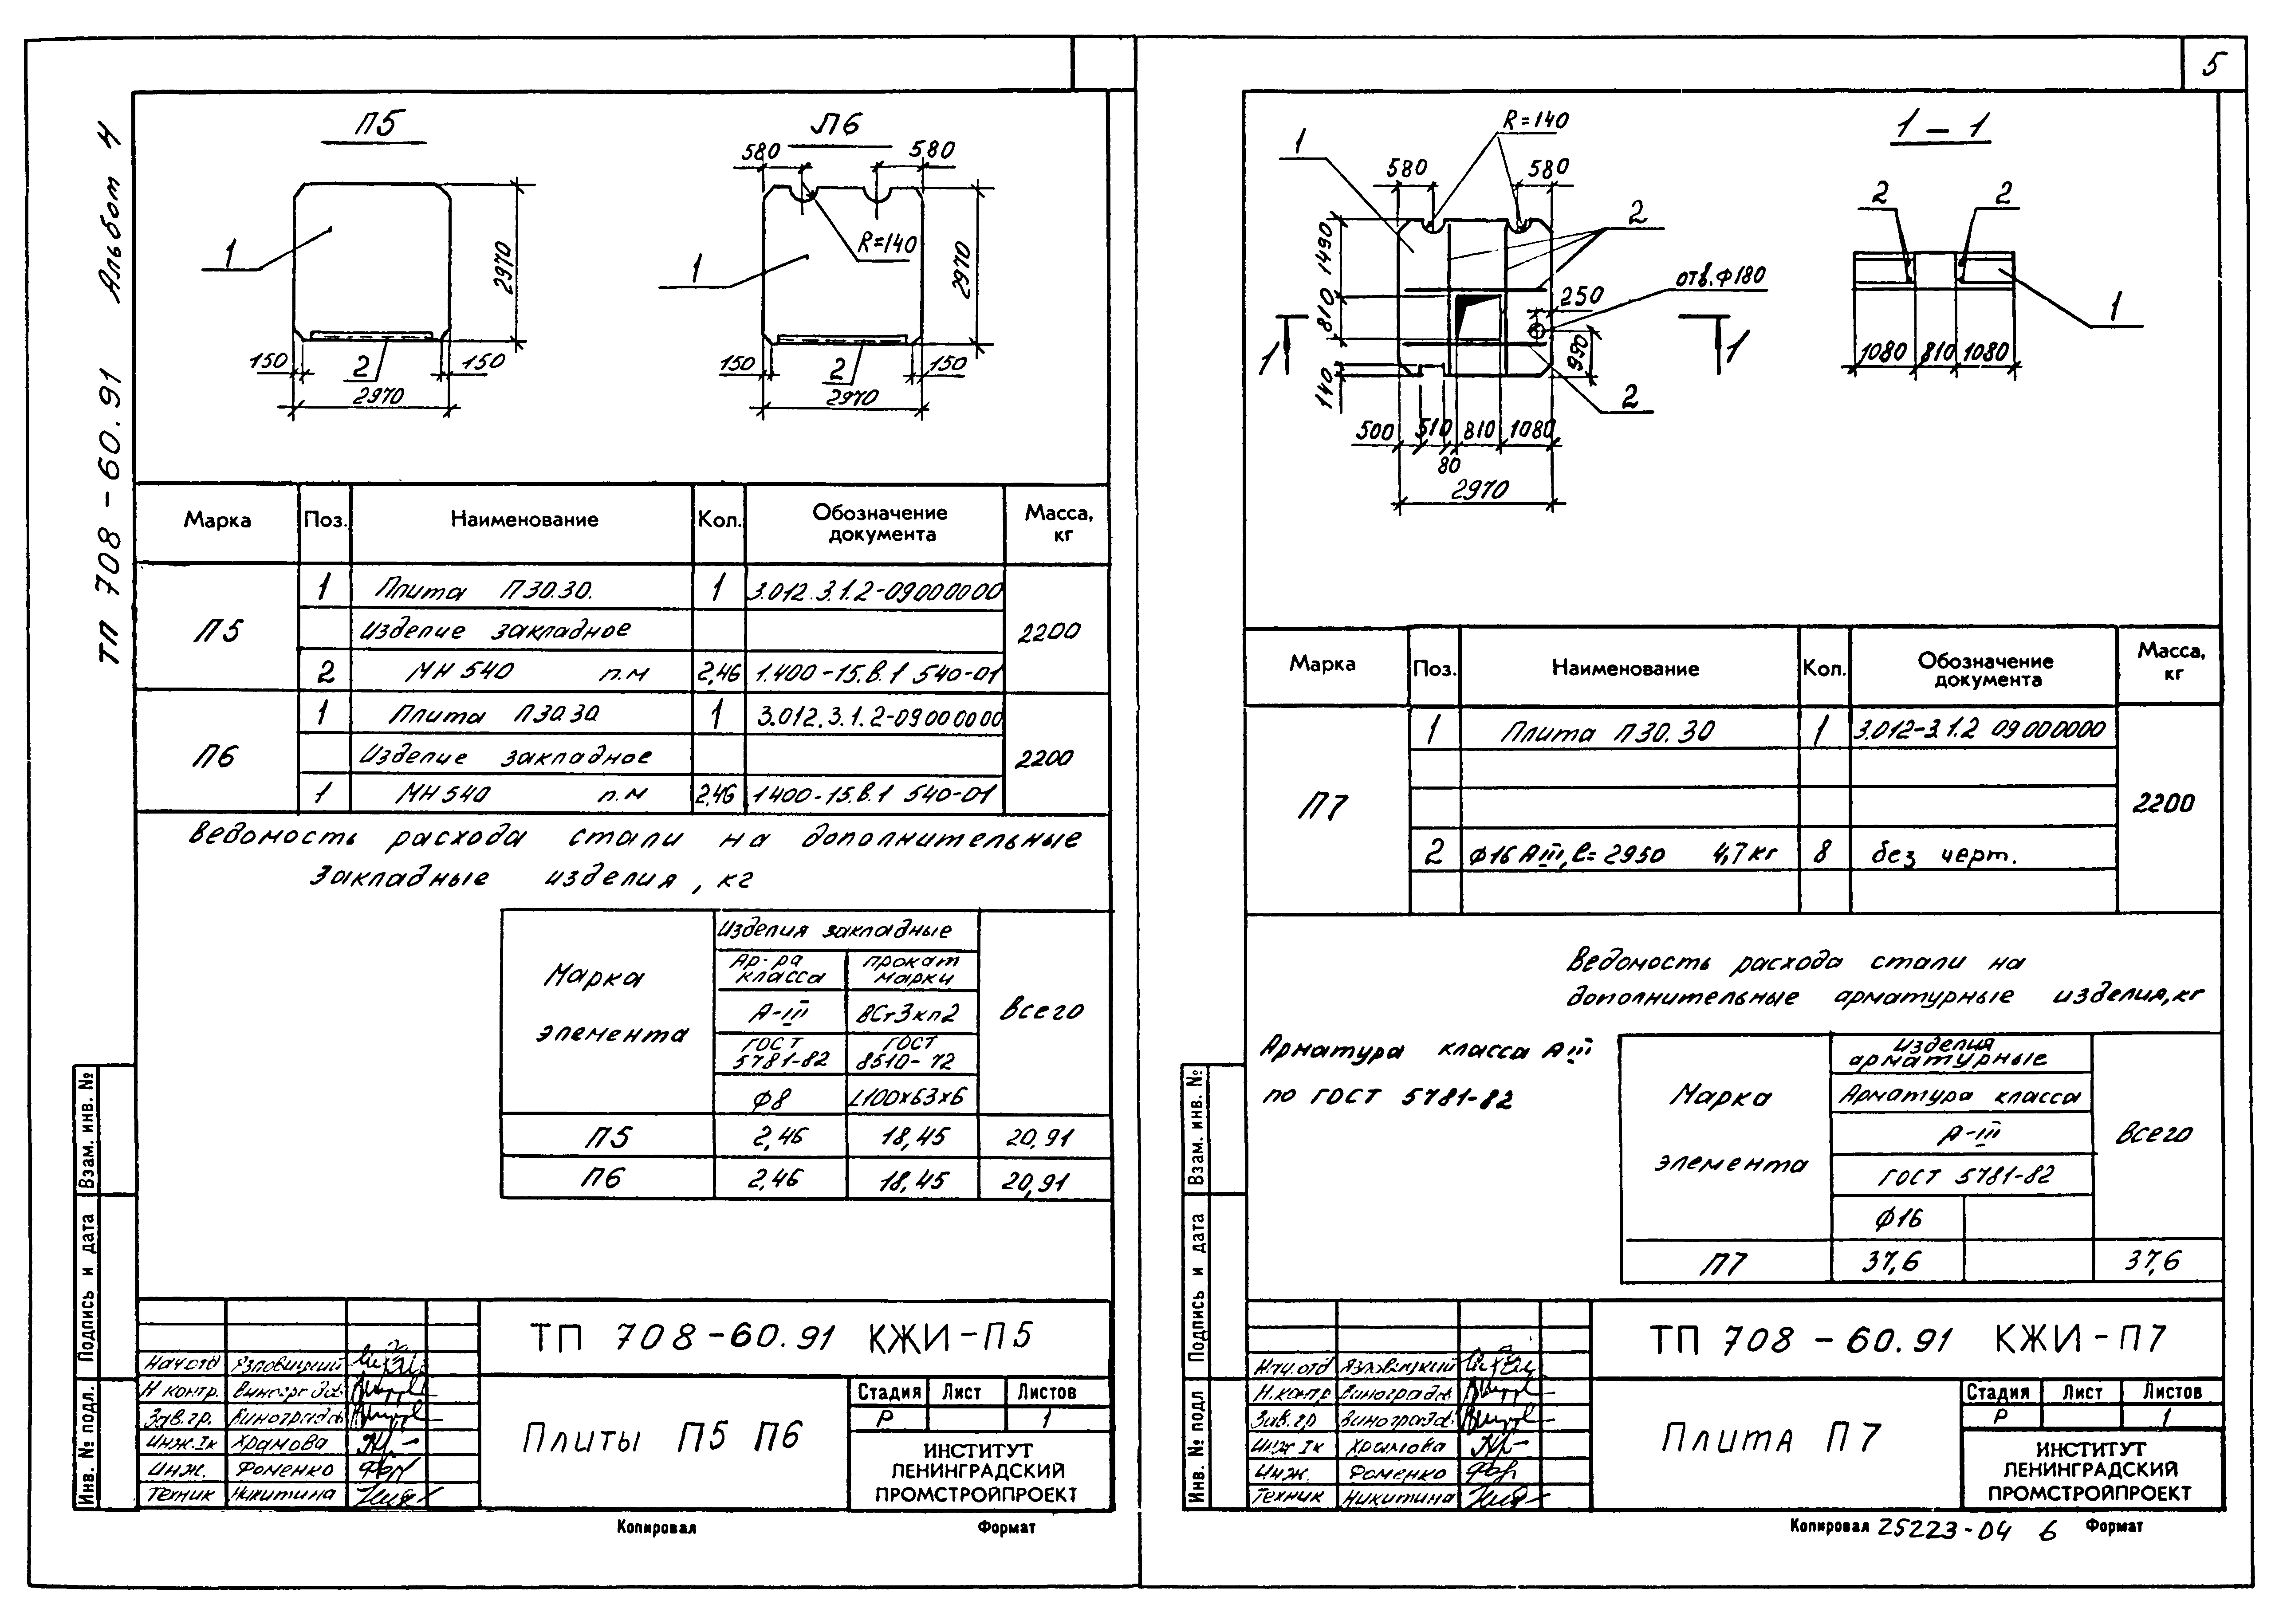 5
ТП 708-60.91 Альбом 4
П5
1
2970
150
2
150
2970
П6
580
580
R=140
1
2970
150
2
150
2970
Марка Поз. Наименование Кол. Обозначение документа Масса, кг
П5 2200
1 Плита П30.30. 1 3.012.3.1.2-09000000
Изделие закладное
2 МН 540 п.м 2,46 1.400-15.В.1 540-01
П6 2200
1 Плита П30.30 1 3.012.3.1.2-09000000
Изделие закладное
1 МН 540 п.м 2,46 1400-15.В.1 540-01
Ведомость расхода стали на дополнительные
закладные изделия, кг
Марка элемента
Изделия закладные
Всего
Ар-ра класса
прокат марки
А-III
ВСт3кп2
ГОСТ 5781-82
ГОСТ 8510-72
Ф8
L100x63x6
П5 2,46 18,45 20,91
П6 2,46 18,45 20,91
ТП 708-60.91 КЖИ-П5
Нач.отд Язловицкий
Н контр.
Зав.гр.
Инж.Iк Храмова
Инж. Фоменко
Техник Никитина
Плиты П5 П6
Стадия Лист Листов
Р 1
ИНСТИТУТ
ЛЕНИНГРАДСКИЙ
ПРОМСТРОЙПРОЕКТ
Инв. № подл. Подпись и дата Взам. инв. №
Копировал Формат
R=140
1
580
580
2
1490
810
140
отв.Ф180
250
990
1
1
2
500
510
810
1080
80
2970
1-1
2
2
1
1080
810
1080
Марка Поз. Наименование Кол. Обозначение документа Масса, кг
П7 2200
1 Плита П30.30 1 3.012-3.1.2 09000000
2 Ф16 АIII, ℓ=2950 4,7кг 8 без черт.
Ведомость расхода стали на
дополнительные арматурные изделия,кг
Арматура класса АIII
по ГОСТ 5781-82
Марка элемента
Изделия арматурные
Всего
Арматура класса
А-III
ГОСТ 5781-82
Ф16
П7 37,6 37,6
ТП 708-60.91 КЖИ-П7
Нач.отд Язловицкий
Н.контр
Зав.гр
Инж Iк Храмова
Инж. Фоменко
Техник Никитина
Плита П7
Стадия Лист Листов
Р 1
ИНСТИТУТ
ЛЕНИНГРАДСКИЙ
ПРОМСТРОЙПРОЕКТ
Инв. № подл Подпись и дата Взам. инв. №
Копировал 25223-04 6 Формат